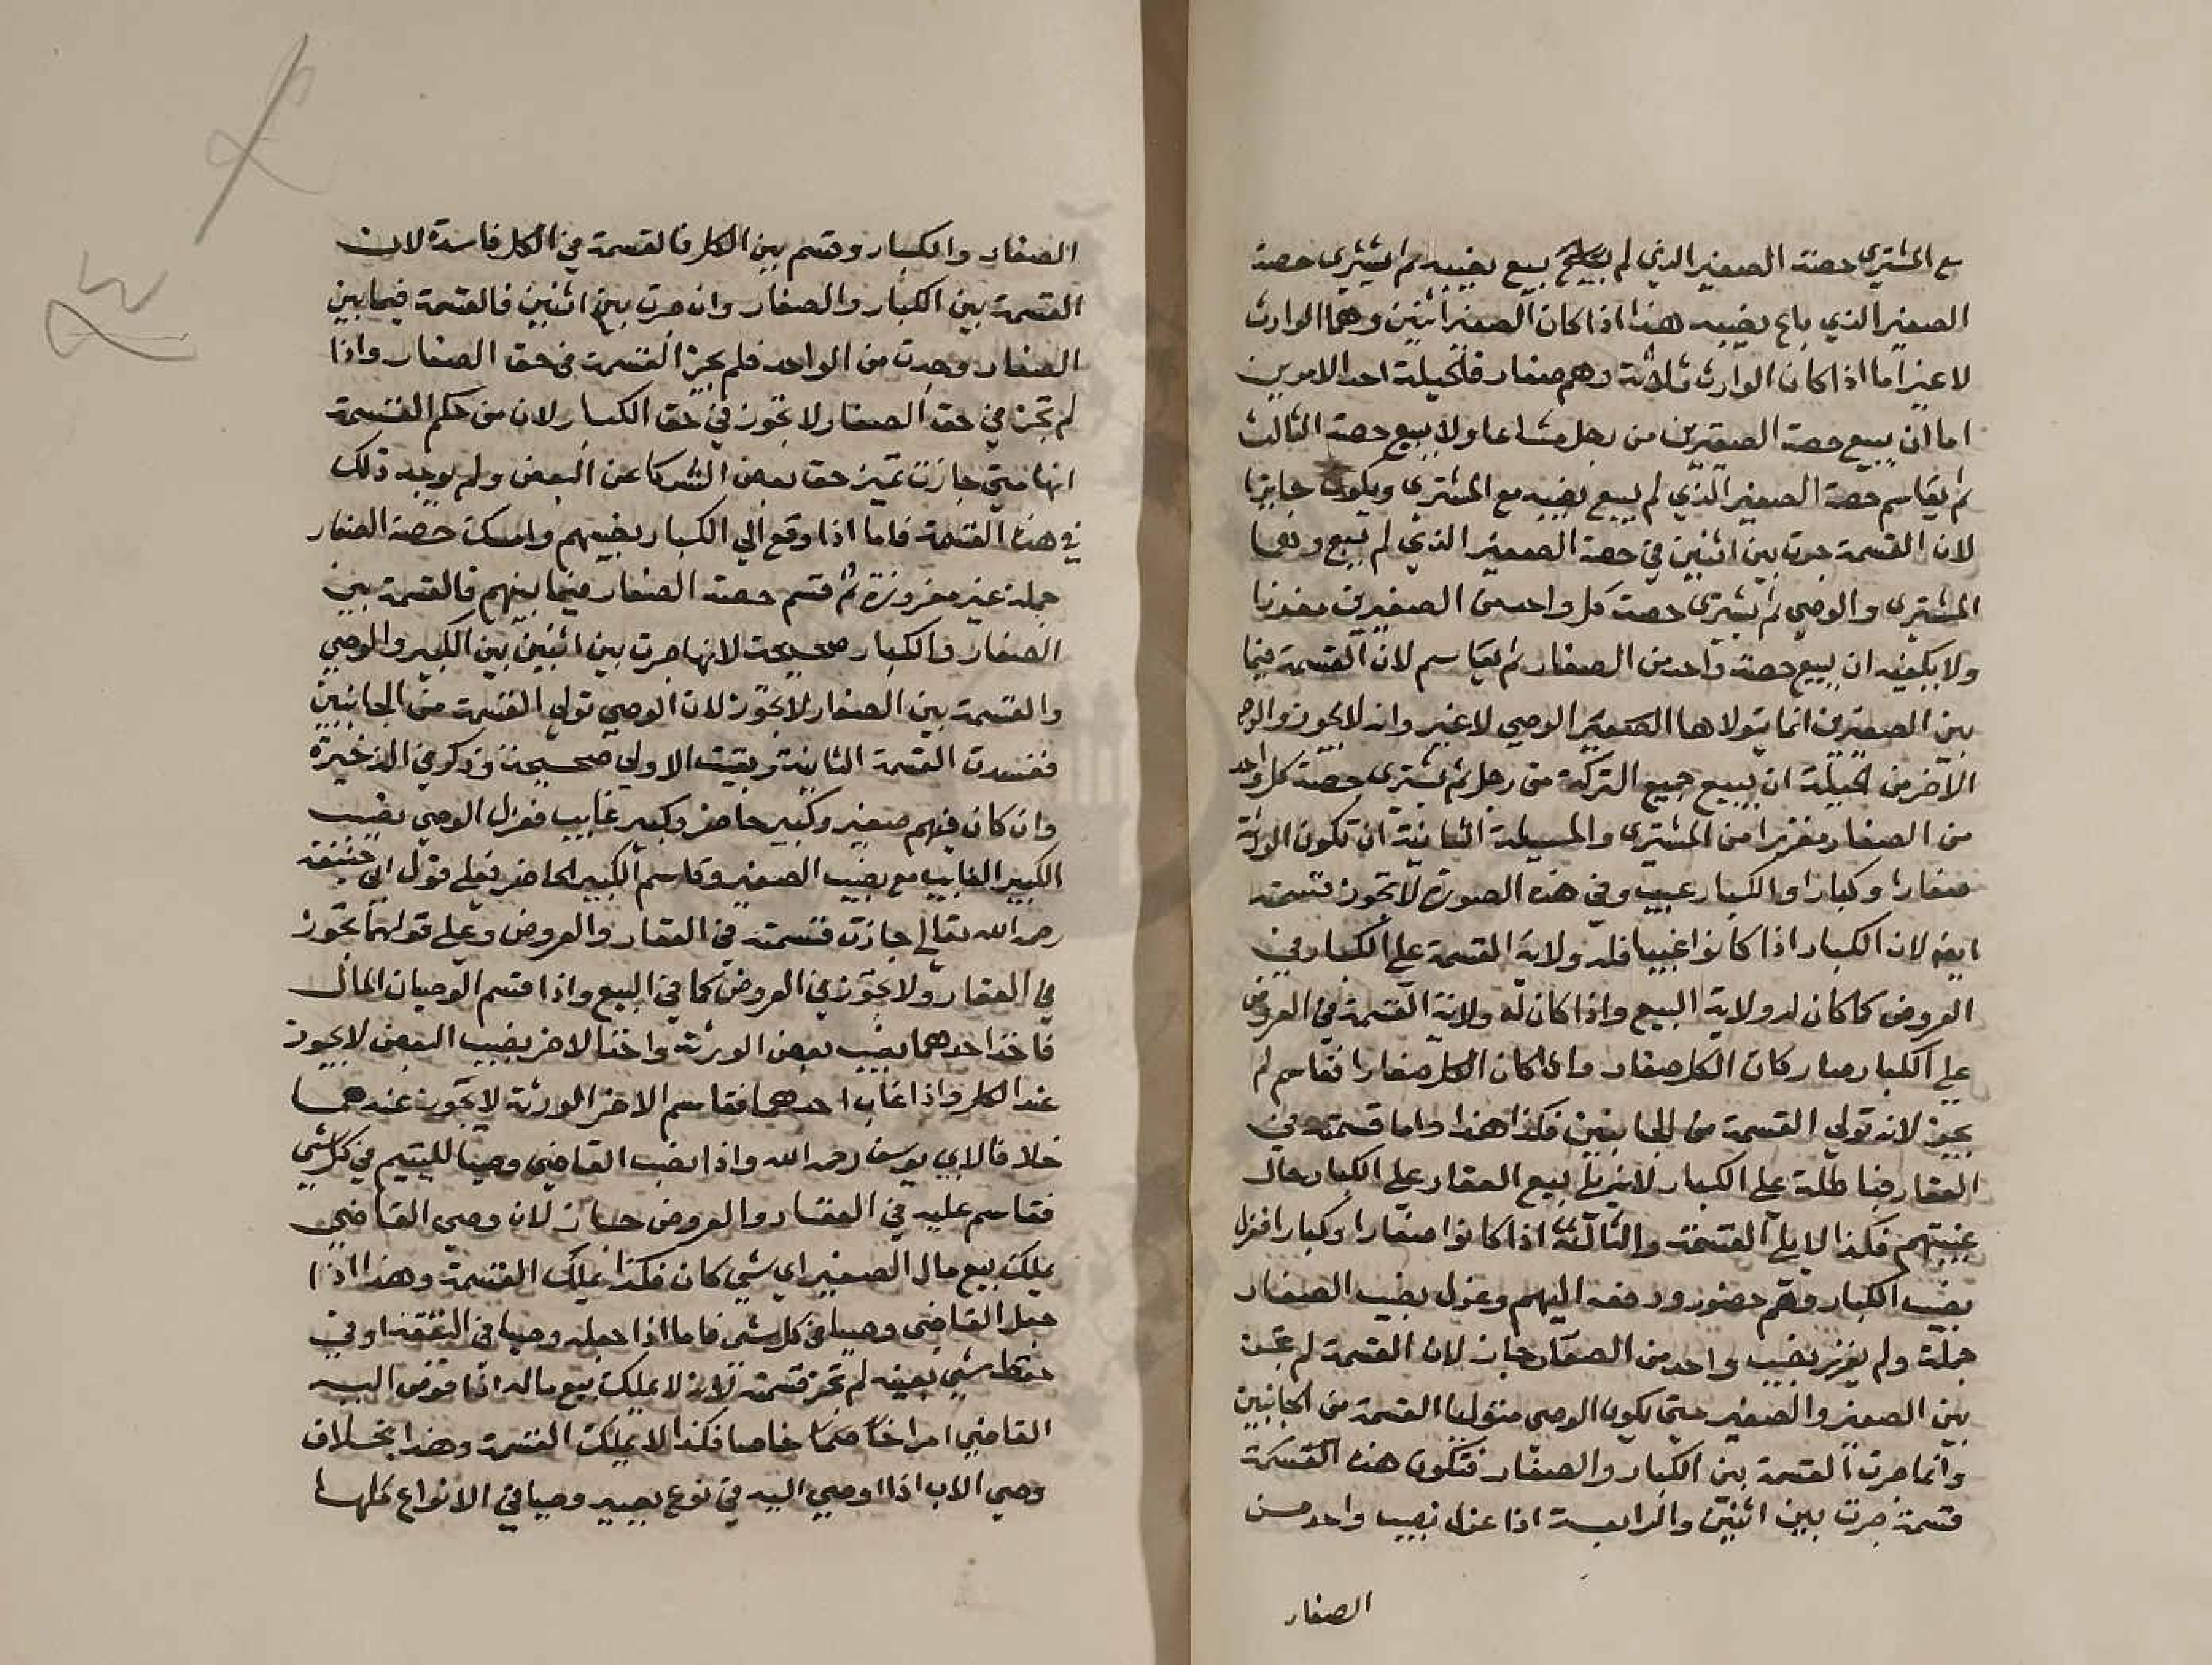 مع المشتري حصة الصغير الذي لم يبع نصيبه ثم يشتري حصة
الصغير الذي باع نصيبه هذا اذا كان الصغير اثنين وهما الوارث
لا غير اما اذا كان الوارث ثلاثة وهم صغار فالحيلة احد الامرين
اما ان يبيع حصة الصغيرين من رجل مشاعا ولا يبيع حصة الثالث
ثم يقاسم حصة الصغير الذي لم يبع نصيبه مع المشتري ويكون جايزا
لان القسمة جرت بين اثنين في حصة الصغير الذي لم يبع وهما
المشتري والوصي ثم يشتري حصة كل واحد من الصغيرين مفرزا
ولا يكفيه ان يبيع حصة واحد من الصغار ثم يقاسم لان القسمة فيما
بين الصغيرين انما يتولاها الوصي لا غير وانه لا يجوز والوجه
الآخر من الحيلة ان يبيع جميع التركة من رجل ثم يشتري حصة كل واحد
من الصغار مفرزا من المشتري والمسيلة الثانية ان تكون الورثة
صغارا وكبارا والكبار غيب وفي هذه الصورة لا تجوز قسمته
ايضه لان الكبار اذا كانوا غيبا فله ولاية القسمة علي الكبار في
العروض كما كان له ولاية البيع واذا كان له ولاية القسمة في العروض
علي الكبار صار كان الكل صغار وان كان الكل صغارا فقاسم لم
يجز لانه تولي القسمة من الجانبين فكذا هذا واما قسمته في
العقار فباطلة علي الكبار لانه لا يلي بيع العقار علي الكبار حال
غيبتهم فكذا لا يلي القسمة والثالثة اذا كانوا صغارا وكبارا فعزل
نصيب الكبار وهم حضور ودفعه اليهم وعزل نصيب الصغار
جملة ولم يفرز نصيب واحد من الصغار جاز لان القسمة لم تجز
بين الصغير والصغير حتي يكون الوصي متوليا القسمة من الجانبين
وانما جرت القسمة بين الكبار والصغار فتكون هذه القسمة
قسمة جرت بين اثنين والرابعة اذا عزل نصيب واحد من
الصغار
الصغار والكبار وقسم بين الكل فالقسمة في الكل فاسدة لان
القسمة بين الكبار والصغار وان جرت بين اثنين فالقسمة فيما بين
الصغار وجدت من الواحد فلم يجز القسمة في حق الصغار واذا
لم تجز في حق الصغار لا تجوز في حق الكبار لان من حكم القسمة
انها متي جازت تميز حق بعض الشركا عن البعض ولم يوجد ذلك
في هذه القسمة فاما اذا وقع الي الكبار نصيبهم وامسك حصة الصغار
جملة غير مفروزة ثم قسم حصة الصغار فيما بينهم فالقسمة بين
الصغار والكبار صحيحة لانها جرت بين اثنين بين الكبير والوصي
والقسمة بين الصغار لا تجوز لان الوصي تولي القسمة من الجانبين
ففسدت القسمة الثانية وبقيت الاولي صحيحة وذكر في الذخيرة
وان كان فيهم صغير وكبير حاضر وكبير غايب فعزل الوصي نصيب
الكبير الغايب مع نصيب الصغير وقاسم الكبير الحاضر فعلي قول ابي حنيفة
رحمه الله تعالي جازت قسمته في العقار والعروض وعلي قولهما تجوز
في العقار ولا تجوز في العروض كما في البيع واذا قسم الوصيان المال
فاخذ احدهما نصيب بعض الورثة واخذ الاخر نصيب البعض لا يجوز
عند الكل واذا غاب احدهما فقاسم الاخر الورثة لا يجوز عندهما
خلافا لابي يوسف رحمه الله واذا نصب القاضي وصيا لليتيم في كل شي
فقاسم عليه في العقار والعروض جاز لان وصي القاضي
يملك بيع مال الصغير اي شي كان فكذا يملك القسمة وهذا اذا
جعل القاضي وصيا في كل شي فاما اذا جعله وصيا في النفقة او في
حفظ شي بعينه لم تجز قسمته لانه لا يملك بيع ماله اذا فوض اليه
القاضي امرا خاصا فكذا لا يملك القسمة وهذا بخلاف
وصي الاب اذا اوصي اليه في نوع يصير وصيا في الانواع كلها